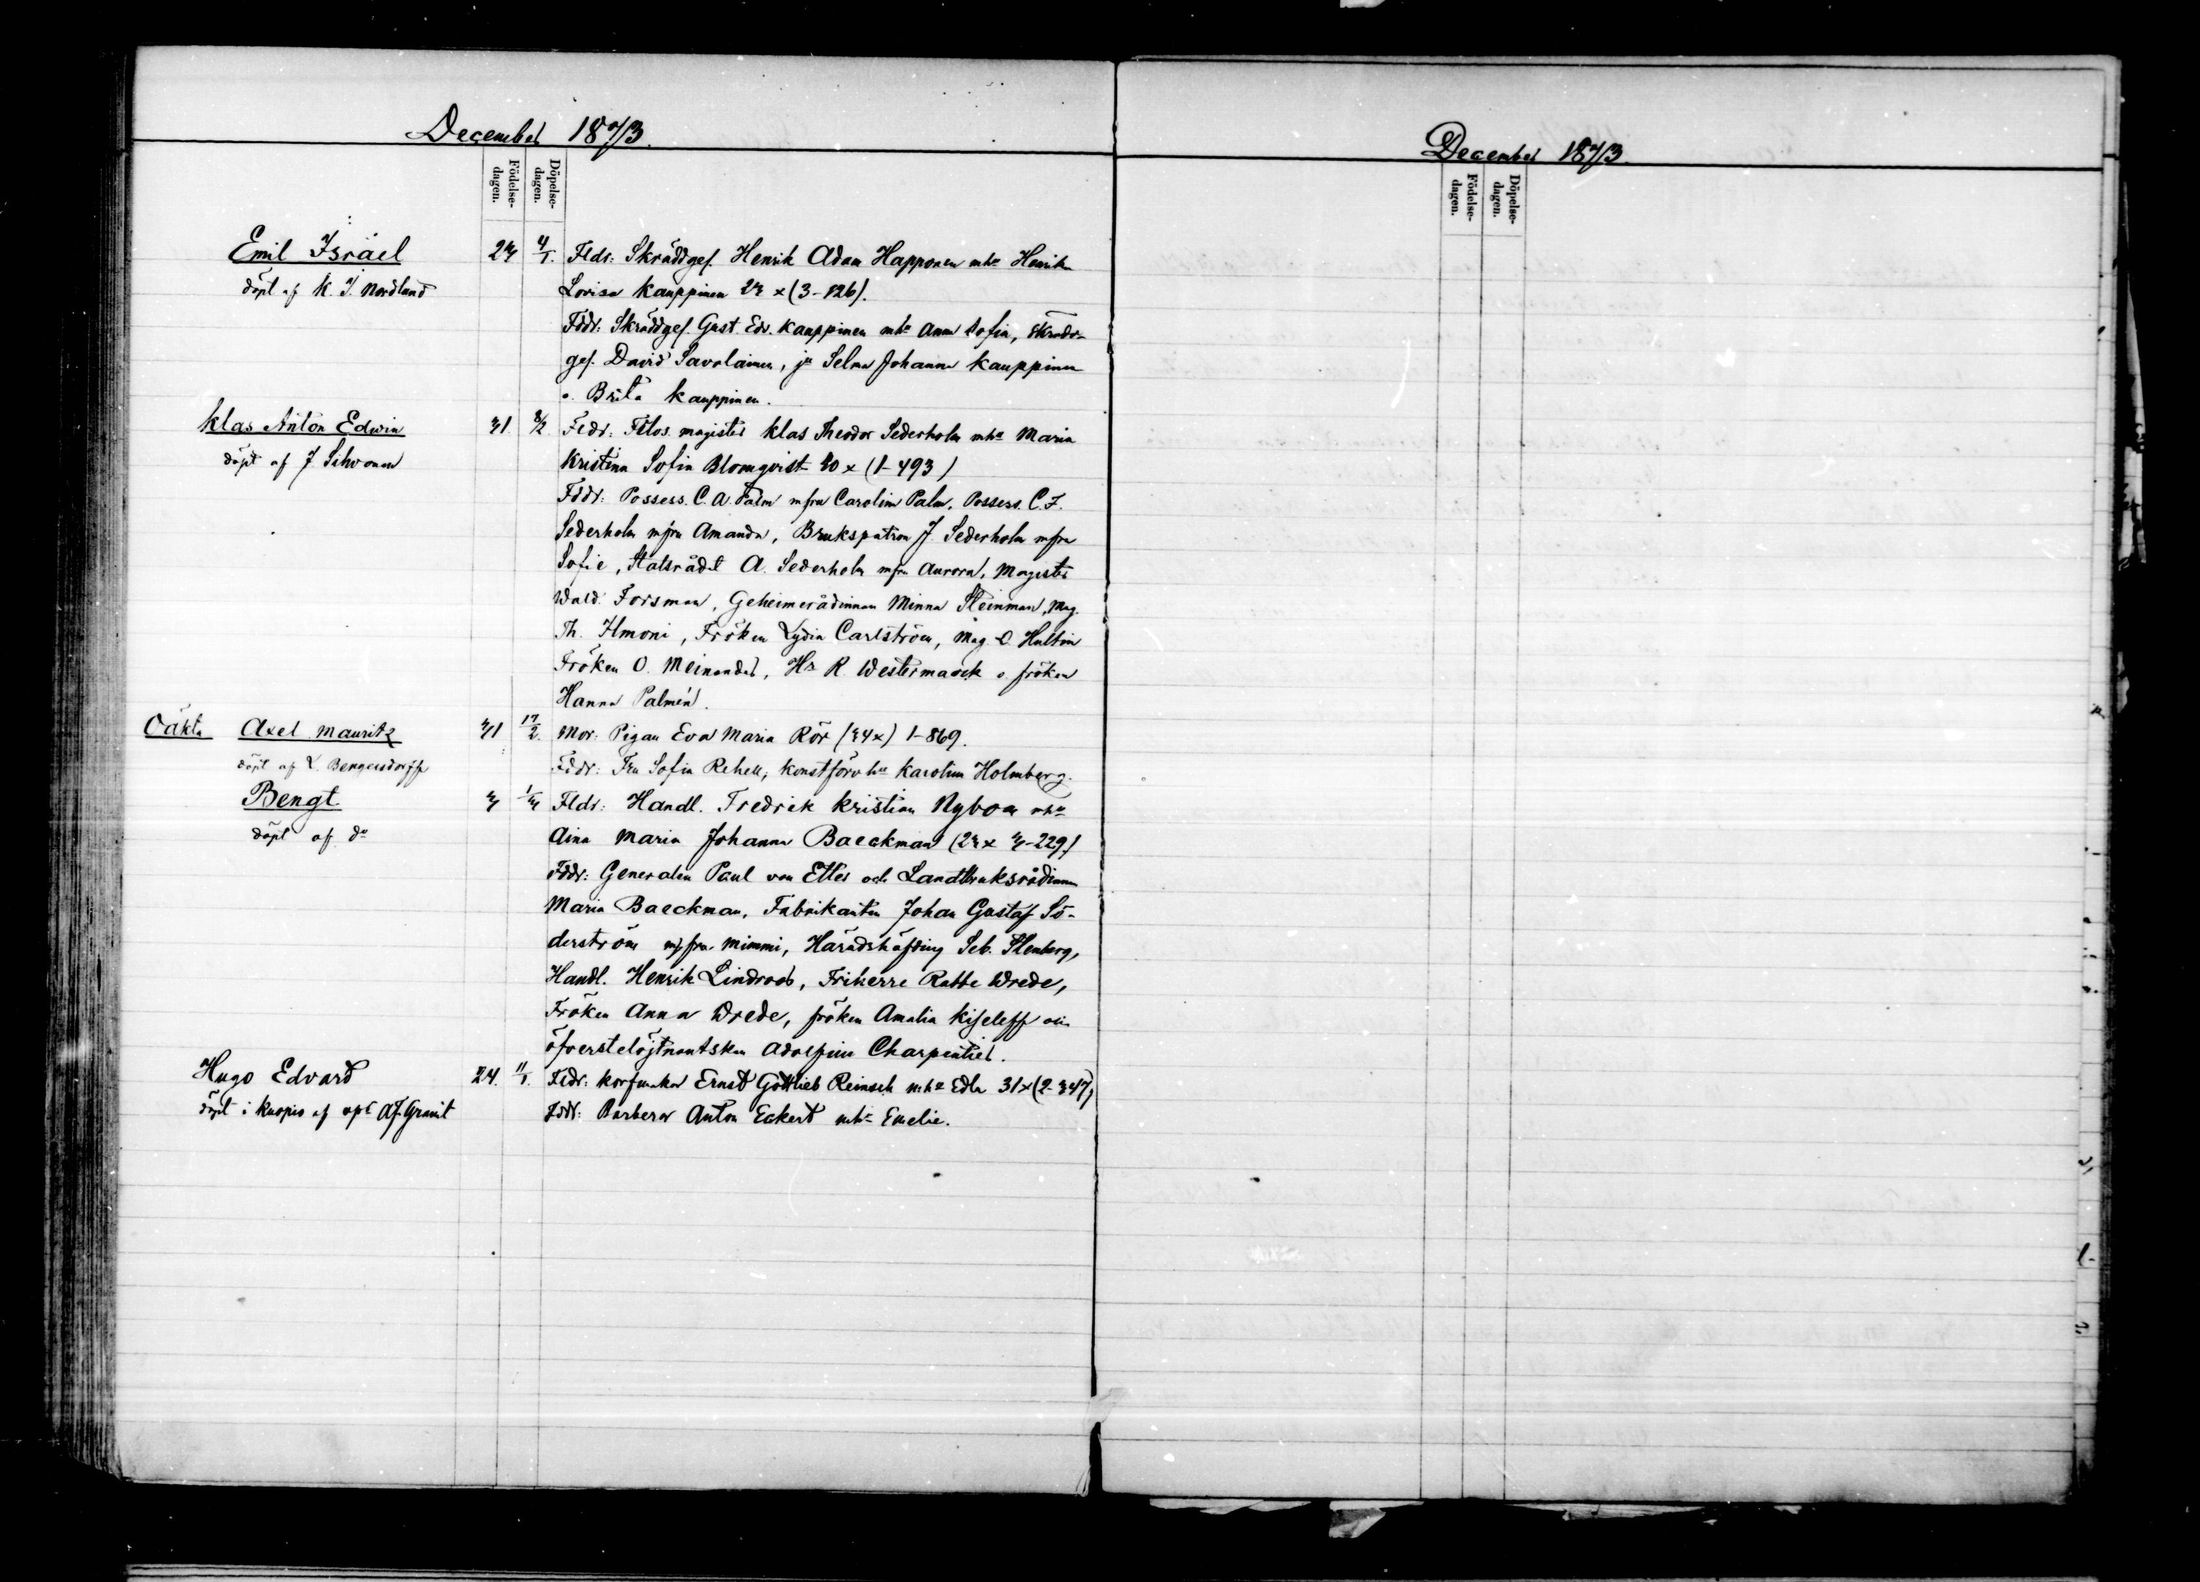 December 1873.
Födelse-
dagen.
Döpelse-
dagen.
Emil Israel
döpt af K. J. Nordlund
23
4/1.
Fldr: Skräddges. Henrik Adam Happonen mha Henrika
Lovisa Kauppinen 23 x (3-126).
Fddr: Skräddges. Gust. Edv. Kauppinen mha Anna Sofia, Skrädd-
ges. David Savolainen, ja Selma Johanna Kauppinen
o. Brita Kauppinen.
Klas Anton Edwin
döpt af J Sihvonen
31
8/2
Fldr: Filos. magister Klas Theodor Sederholm mha Maria
Kristina Sofia Blomqvist 30 x (1-493)
Fddr: Possess. C. A. Palm m fru Carolina Palm, Possess. C. F.
Sederholm m fru Amanda, Brukspatron J. Sederholm m fru
Sofie, Statsrådet A. Sederholm m fru Aurora, Magister
Wald. Forsman, Geheimerådinnan Minna Steinman, Mag.
Th. Ilmoni, Fröken Lydia Carlström, Mag. O. Hultin
Fröken O. Meinander, Hr R. Westermarck o. fröken
Hanna Palmén.
Oäkta
Axel Mauritz
döpt af L. Bengersdorff
31
17/2.
Mor: Pigan Eva Maria Rör (34x) 1-869.
Fddr: Fru Sofia Rehell, Konstförv ha Karolina Holmberg.
Bengt
döpt af do
3
1/3
Fldr: Handl. Fredrik Kristian Nybom mha
Aina Maria Johanna Baeckman (23x 3-229)
Fddr: Generalen Paul von Etter och Landtbruksrådinnan
Maria Baeckman, Fabrikanten Johan Gustaf Sö-
derström m fru Mimmi, Häradshöfding Seb. Stenberg,
Handl. Henrik Lindroos, Friherre Rabbe Wrede,
Fröken Anna Wrede, fröken Amalia Kiseleff och
öfverstelöjtnantskan Adolfine Charpentier.
Hugo Edvard
döpt i Kuopio af vpt Af. Granit
24.
11/1.
Fldr: Korfmakar Ernst Gottlieb Reinsch mha Edla 31x (2-347)
Fddr: Barberar Anton Eckert mha Emelie.
December 1873.
Födelse-
dagen.
Döpelse-
dagen.